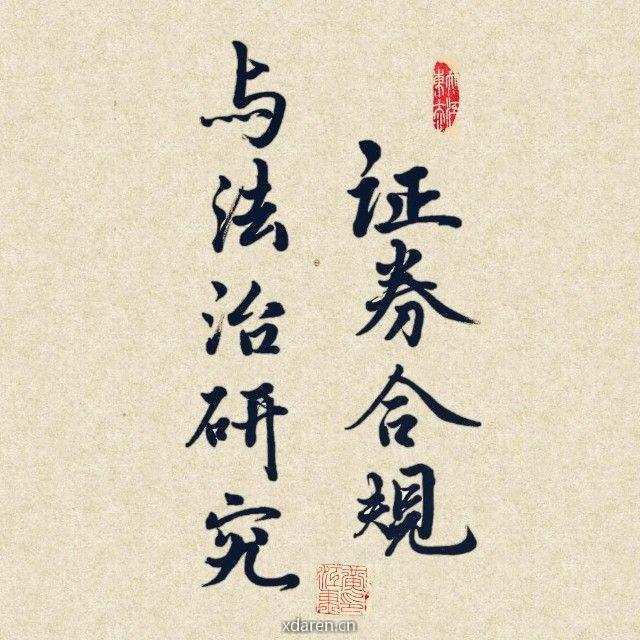 证券合规
与法治研究
xdaren.cn